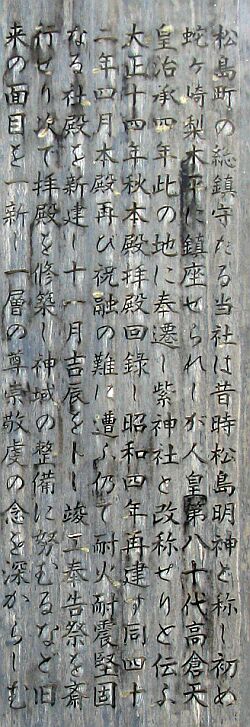 松島町の総鎮守たる当社は昔時松島明神と称し初め
蛇ヶ崎梨木平に鎮座せられしが人皇第八十代高倉天
皇治承四年此の地に奉遷し紫神社と改称せりと伝ふ
大正十四年秋本殿拝殿回録し昭和四年再建す同四十
二年四月本殿再び祝融の難に遭ふ仍て耐火耐震堅固
なる社殿を新建し十一月吉辰をトし竣工奉告祭を斎
行せり次で拝殿を修築し神域の整備に努むるなど旧
来の面目を一新し一層の尊崇敬虔の念を深からしむ